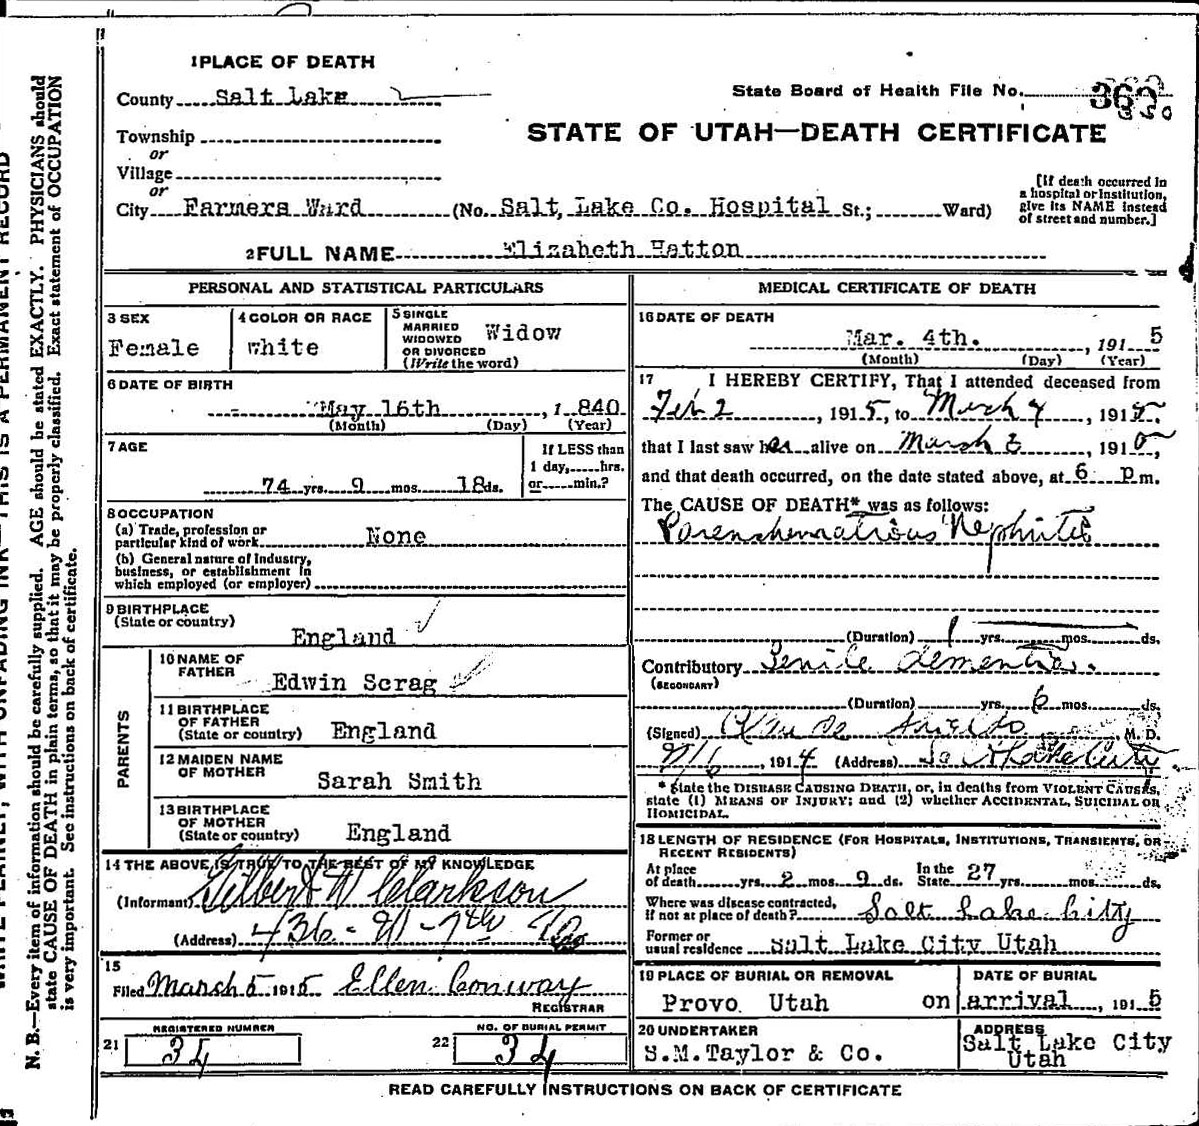 1 PLACE OF DEATH
County Salt Lake
State Board of Health File No.
STATE OF UTAH—DEATH CERTIFICATE
Township
or
Village
or
City Farmers Ward (No. Salt, Lake Co. Hospital St.; Ward)
[If death occurred in
a hospital or institution,
give its NAME instead
of street and number.]
2 FULL NAME Elizabeth Hatton
PERSONAL AND STATISTICAL PARTICULARS
3 SEX
Female
4 COLOR OR RACE
White
5 SINGLE
MARRIED
WIDOWED
OR DIVORCED
(Write the word)
Widow
6 DATE OF BIRTH
May 16th, 1 840
(Month) (Day) (Year)
7 AGE
74 yrs. 9 mos. 18 ds.
If LESS than
1 day, hrs.
or min.?
8 OCCUPATION
(a) Trade, profession or
particular kind of work None
(b) General nature of industry,
business, or establishment in
which employed (or employer)
9 BIRTHPLACE
(State or country)
England
PARENTS
10 NAME OF
FATHER
Edwin Scrag
11 BIRTHPLACE
OF FATHER
(State or country) England
12 MAIDEN NAME
OF MOTHER
Sarah Smith
13 BIRTHPLACE
OF MOTHER
(State or country) England
14 THE ABOVE IS TRUE TO THE BEST OF MY KNOWLEDGE
(Informant) Gilbert W Clarkson
(Address) 436
15
Filed March 5 1915 Ellen Conway
REGISTRAR
REGISTERED NUMBER
21 34
NO. OF BURIAL PERMIT
22 34
MEDICAL CERTIFICATE OF DEATH
16 DATE OF DEATH
Mar. 4th., 191 5
(Month) (Day) (Year)
17 I HEREBY CERTIFY, That I attended deceased from
Feb 2, 1915, to March 4, 1915,
that I last saw her alive on March 3, 1915,
and that death occurred, on the date stated above, at 6 p m.
The CAUSE OF DEATH* was as follows:
Parenchymatious Nephritis
(Duration) 1 yrs. mos. ds.
Contributory Senile dementia.
(SECONDARY)
(Duration) yrs. 6 mos. ds.
(Signed) M. D.
, 1914 (Address) Salt Lake City
* State the DISEASE CAUSING DEATH, or, in deaths from VIOLENT CAUSES,
state (1) MEANS OF INJURY; and (2) whether ACCIDENTAL, SUICIDAL OR
HOMICIDAL.
18 LENGTH OF RESIDENCE (FOR HOSPITALS, INSTITUTIONS, TRANSIENTS, OR
RECENT RESIDENTS)
At place
of death yrs. 2 mos. 9 ds. In the
State 27 yrs. mos. ds.
Where was disease contracted,
if not at place of death? Salt Lake City
Former or
usual residence Salt Lake City Utah
19 PLACE OF BURIAL OR REMOVAL
Provo Utah
DATE OF BURIAL
on arrival, 191 5
20 UNDERTAKER
S.M.Taylor & Co.
ADDRESS
Salt Lake City
Utah
READ CAREFULLY INSTRUCTIONS ON BACK OF CERTIFICATE
N. B.—Every item of information should be carefully supplied. AGE should be stated EXACTLY. PHYSICIANS should
state CAUSE OF DEATH in plain terms, so that it may be properly classified. Exact statement of OCCUPATION
is very important. See instructions on back of certificate.